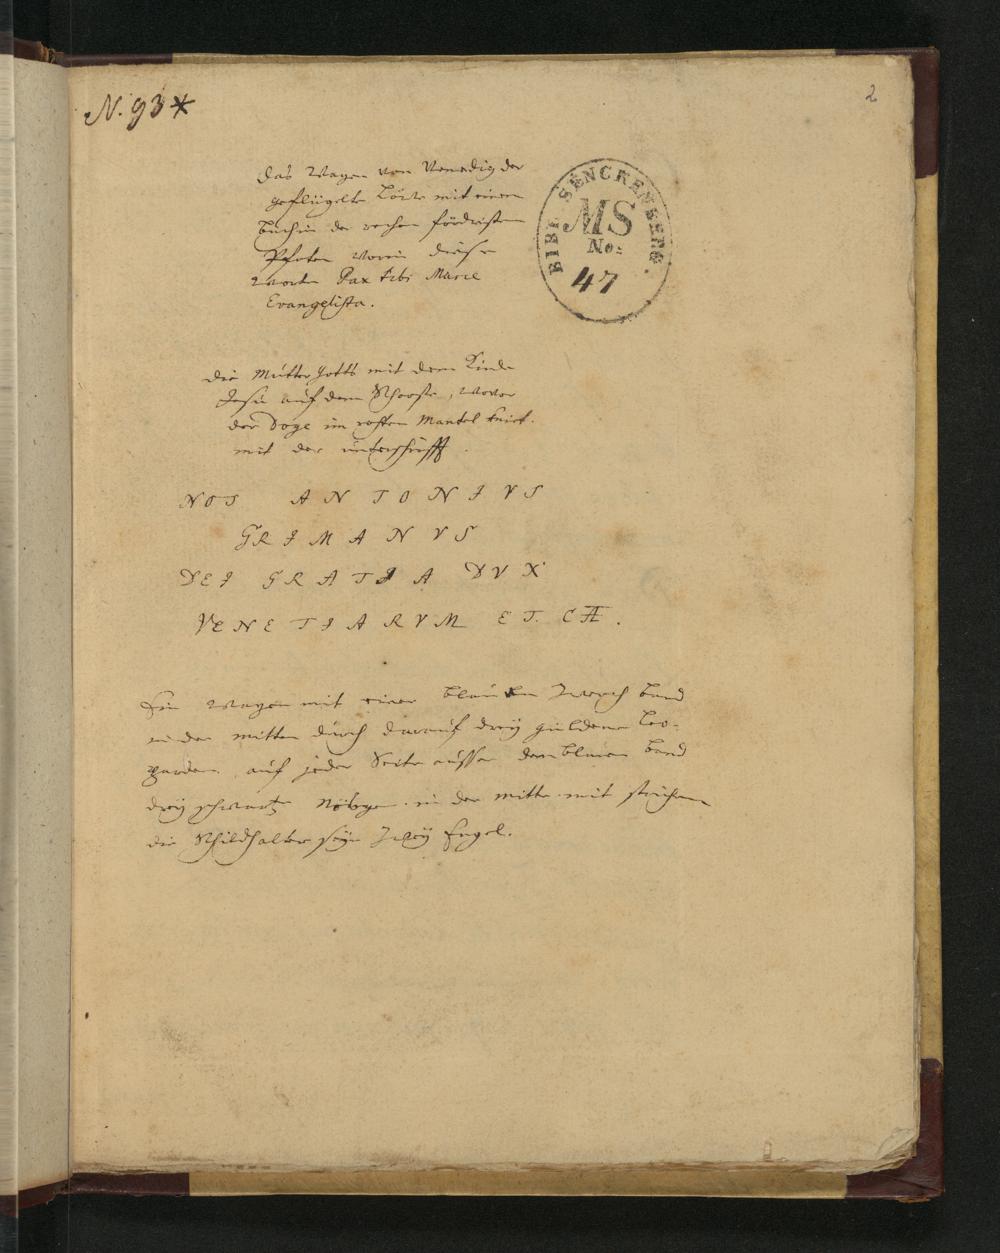 N. 93*
2
das Wapen von Venedig der
geflügelte Löwe mit einem
buch in der rechen fördersten
Pfoten worin diese
worte Pax tibi Marce
Evangelista.
BIBL. SENCKENBERG.
MS
No:
47
die Mutter Gotts mit dem Kinde
Jesu auf dem Schoosse, wovor
der Doge im rothen Mantel kniet.
mit der unterschrifft
NOS ANTONIVS
GRIMANVS
DEI GRATIA DVX
VENETIARVM ET. CÆ.
Ein Wapen mit einer blauen Zwerch band
in der mitten durch darauf drey güldene Leo-
parden, auf jeder Seite ausser dem blauen band
drey schwartze in der mitte mit
die Schildhalter seyn Zwey Engel.